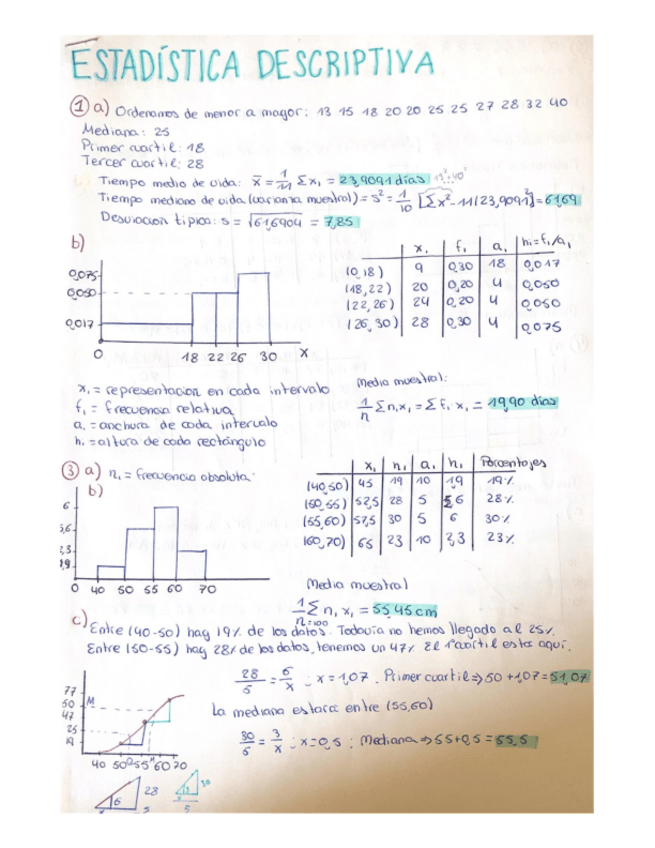 ESTADÍSTICA DESCRIPTIVA
① a) Ordenamos de menor a mayor: 13 15 18 20 20 25 25 27 28 32 40
Mediana: 25
Primer cuartil: 18
Tercer cuartil: 28
Tiempo medio de vida: x̄ = 1/11 Σx₁ = 23,9091 días 13²...40²
Tiempo mediano de vida (varianza muestral) = s² = 1/10 [Σx² - 11(23,9091)²] = 61,69
Desviacion típica: s = √61,6904 = 7,85
b)
x₁ f₁ a₁ h₁=f₁/a₁
(0,18) 9 0,30 18 0,017
(18,22) 20 0,20 4 0,050
(22,26) 24 0,20 4 0,050
(26,30) 28 0,30 4 0,075
0,075
0,050
0,017
0 18 22 26 30 x
x₁ = representacion en cada intervalo
f₁ = frecuencia relativa
a₁ = anchura de cada intervalo
h₁ = altura de cada rectángulo
Media muestral:
1/n Σn₁x₁ = Σf₁·x₁ = 19,90 días
③ a) n₁ = frecuencia absoluta
b)
x₁ n₁ a₁ h₁ Porcentajes
(40,50) 45 19 10 1,9 19%
(50,55) 52,5 28 5 5,6 28%
(55,60) 57,5 30 5 6 30%
(60,70) 65 23 10 2,3 23%
6
5,6
2,3
1,9
0 40 50 55 60 70
Media muestral
1/n=100 Σn₁x₁ = 55,45cm
c) Entre (40-50) hay 19% de los datos. Todavía no hemos llegado al 25%.
Entre (50-55) hay 28% de los datos, tenemos un 47%. El 1ºcuartil esta aquí.
28/5 = 6/x ; x=1,07. Primer cuartil⇒ 50+1,07=51,07
La mediana estará entre (55,60)
30/5 = 3/x ; x=0,5 ; Mediana ⇒ 55+0,5 = 55,5
77
50 M
47
25
19
40 50 55 60 70
6 28 5
30
5